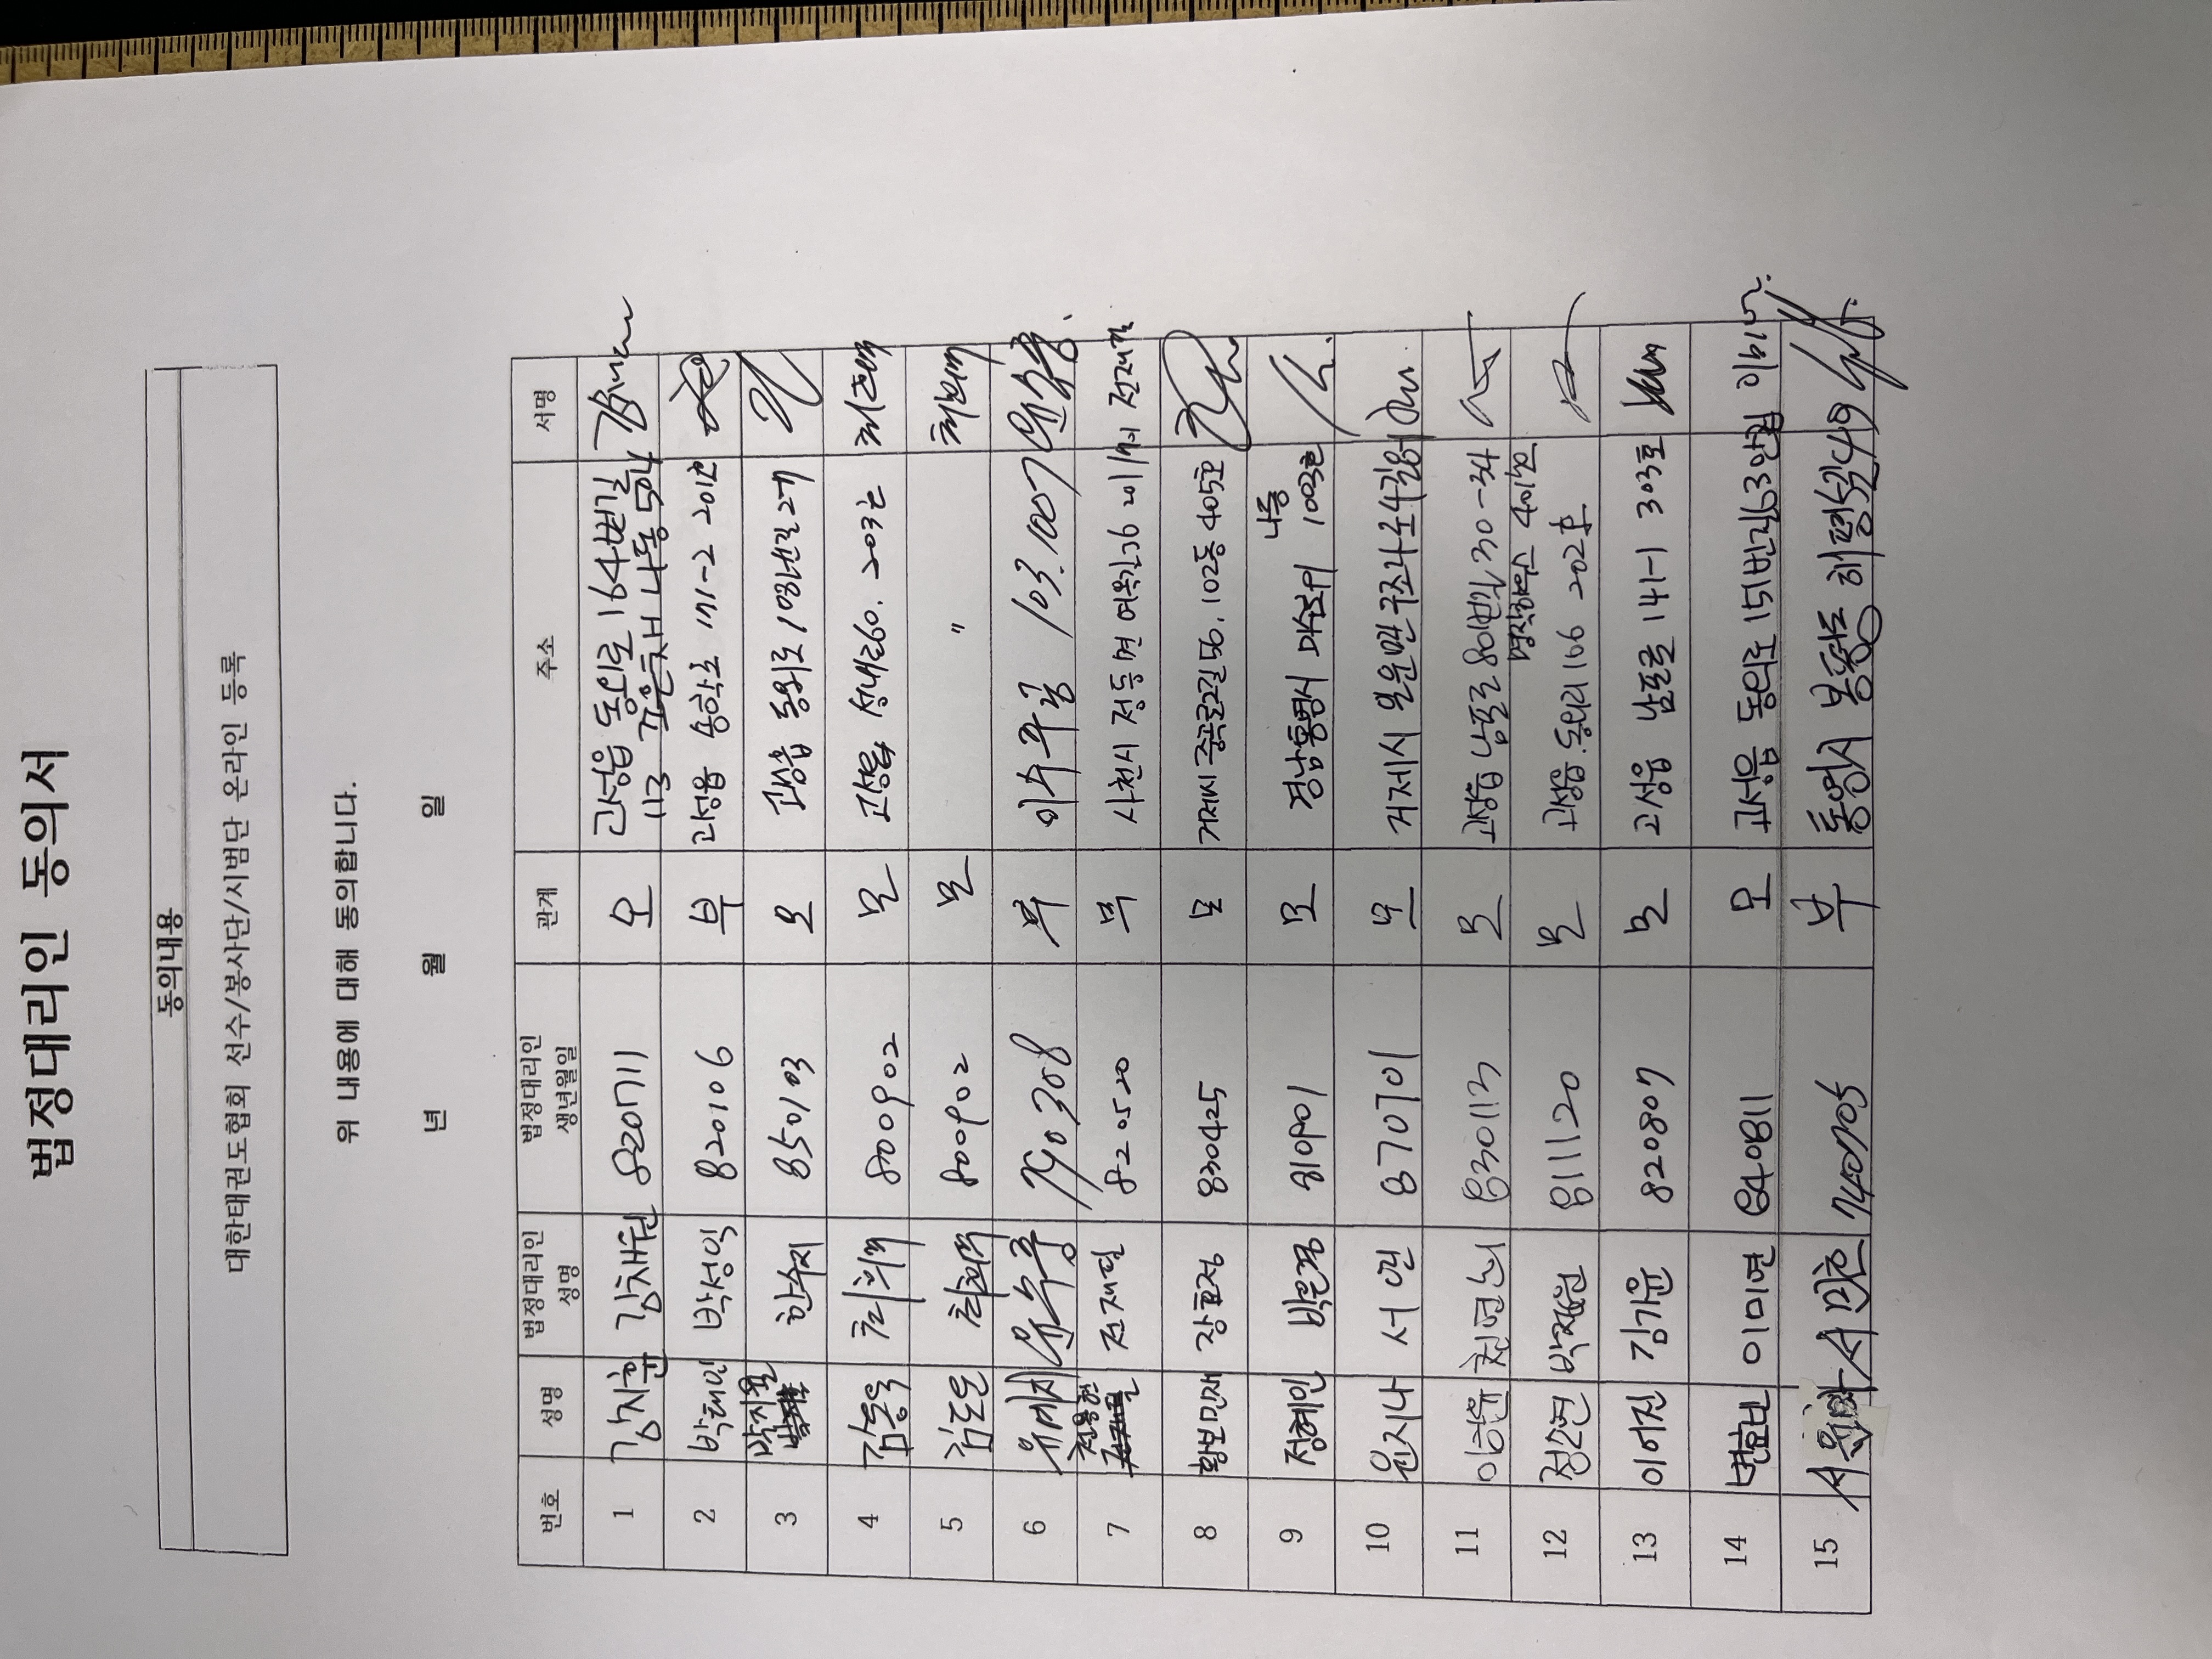 법정대리인 동의서
동의내용
대한태권도협회 선수/봉사단/시범단 온라인 등록
위 내용에 대해 동의합니다.
년 월 일
번호 성명 법정대리인 성명 법정대리인 생년월일 관계 주소 서명
1 강지훈 강채원 820711 모 고성읍 동외로164번길
113 나동 504
2 박태민 박성익 820106 부 고성읍 송학로 171-2 201호
3 박지율 한수지 850103 모 고성읍 동외로 108번길 27
4 김동욱 최희정 800902 모 고성읍 성내로60. 203호
5 김도윤 최희정 800902 모 "
6 유예지 유수종 790308 부 103.1007
7 전용현 전재필 820520 부 사천시 정동면 여옥길36 전재필
8 황보민재 장효정 830425 모 거제시 중곡로2길 56, 102동 405호
9 정혜인 박은정 810901 모 경남통영시 나동 1003호
10 윤지나 서연 870701 모 거제시 일운면 구조라로4길
11 830113 모 고성읍 남포로 80번길 30-34
명진하우스 401호
12 811120 모 고성읍.동외리 166 202호
13 이어진 김가윤 820807 모 고성읍 남포로 141-1 303호
14 변효빈 이미연 840811 모 고성읍 동외로 151번길 이미연
15 740705 부 통영시 봉평동 해평5길 49